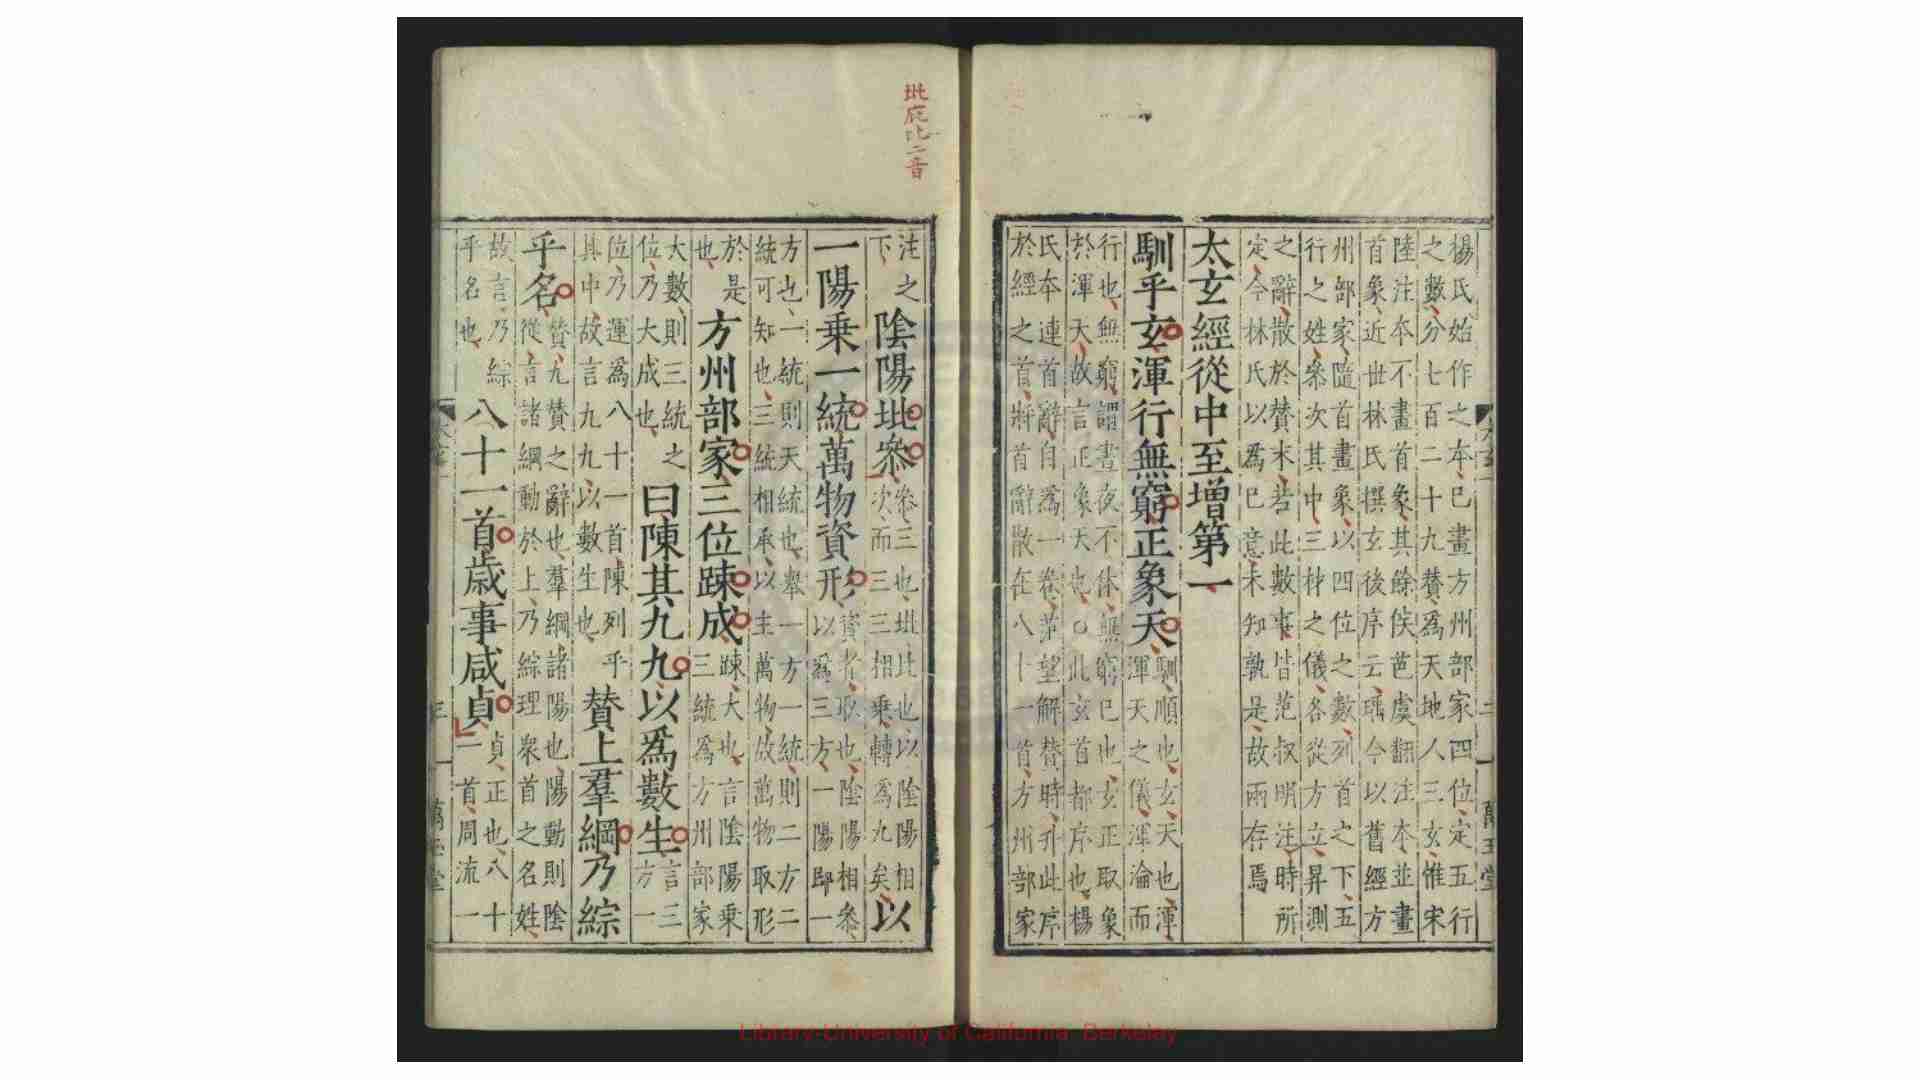 楊氏始作之本已畫方州部家四位定五行
之數分七百二十九贊為天地人三玄惟宋
陸注本不畫首象其餘侯芭虞翻注本並畫
首象近世林氏撰玄後序云瑀今以舊經方
州部家隨首畫象以四位之數列首之下五
行之姓參次其中三材之儀各從方立昇測
之辭散於贊末若此數事皆范叔明注時所
定今林氏以爲已意未知孰是故兩存焉
太玄經從中至增第一
馴乎玄渾行無窮正象天
馴順也玄天也渾
渾天之儀渾淪而
行也無窮謂晝夜不休無窮已也玄正取象
於渾天故言正象天也此玄首都序也楊
氏本連首辭自爲一卷范望解贊時升此序
於經之首將首辭散在八十一首方州部家
坒庇比二音
注之
下
陰陽坒參
參三也坒比也以陰陽相
次而三三相乗轉爲九矣
以
一陽乗一統萬物資形
資者取也陰陽相參
以爲三方一陽即一
方也一統則天統也舉一方一統則二方二
統可知也三統相承以主萬物故萬物取形
於是
也
方州部家三位踈成
踈大也言陰陽乗
三統爲方州部家
大數則三統之
位乃大成也
曰陳其九九以爲數生
言三
方一
位乃運爲八十一首陳列乎
其中故言九九以數生也
贊上羣綱乃綜
乎名
贊九贊之辭也羣綱諸陽也陽動則陰
從言諸綱動於上乃綜理衆首之名姓
故言乃綜
乎名也
八十一首歳事咸貞
貞正也八十
一首周流一
萬玉堂
Library-University of California Berkeley